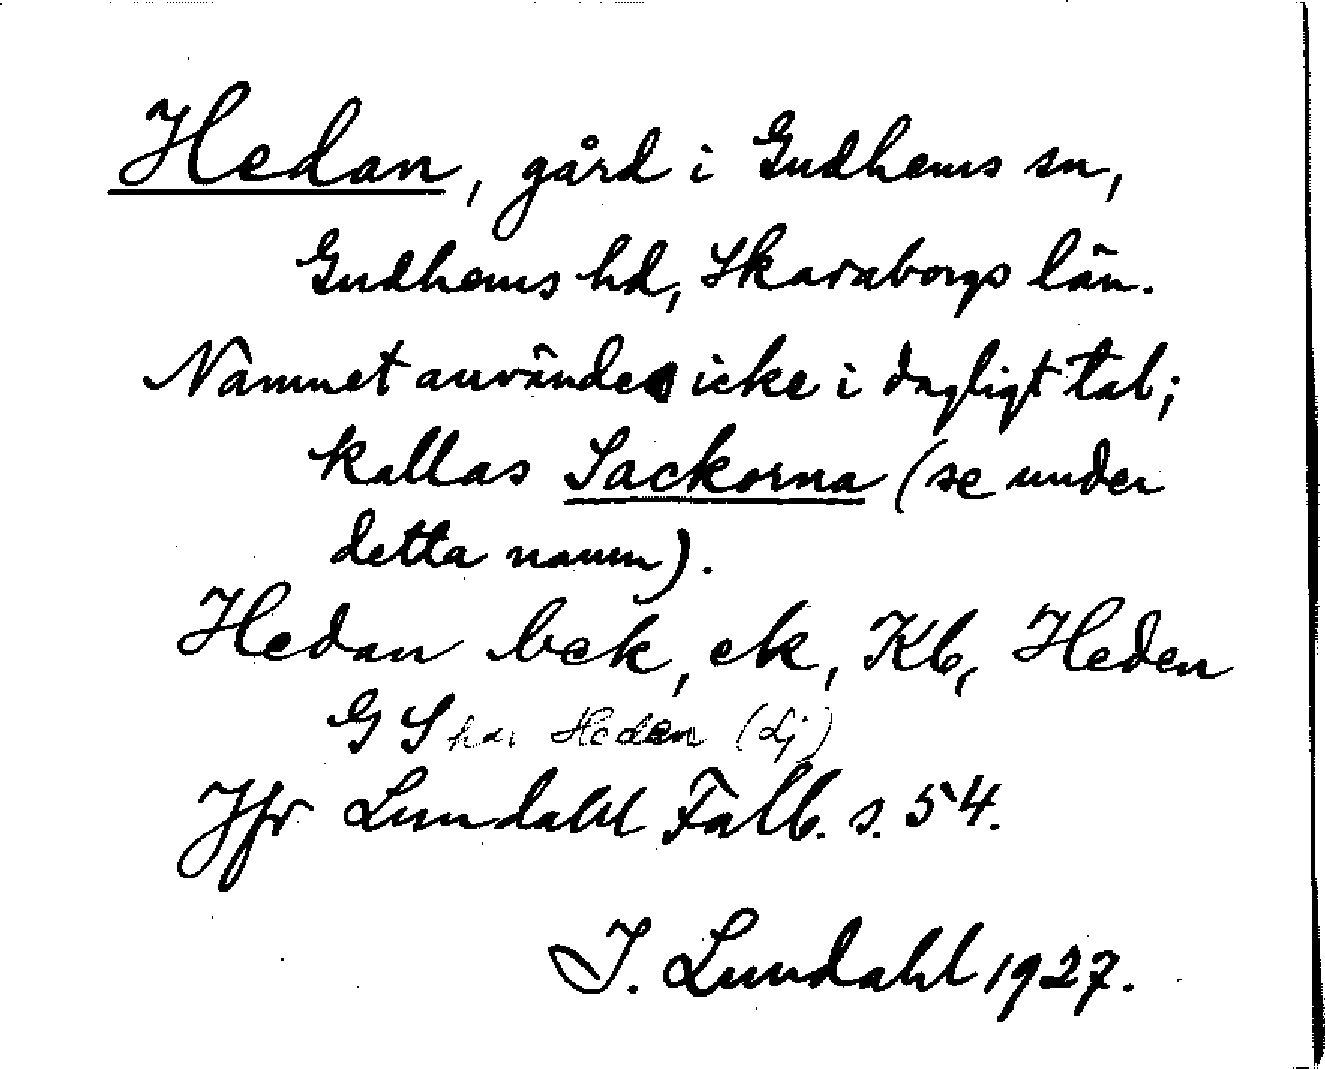 Hedan, gård i Gudhems sn,
Gudhems hd, Skaraborgs län.
Namnet användes icke i dagligt tal;
kallas Sackorna (se under
detta namn).
Hedan bek, ek, Kb, Heden
GS har Heden (Lj)
Jfr Lundahl Falb. s. 54.
I. Lundahl 1927.